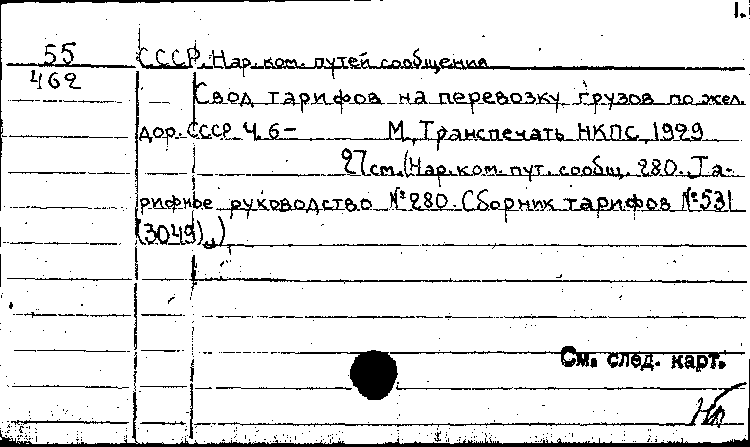 1.
55 СССР. Нар. ком. путей сообщения
462
Свод тарифов на перевозку грузов по жел.
дор. СССР Ч. 6- М., Транспечать НКПС, 1929
27 см. (Нар. ком. пут. сообщ. 280. Та-
рифное руководство №280. Сборник тарифов №531
(3049).)
См. след. карт.